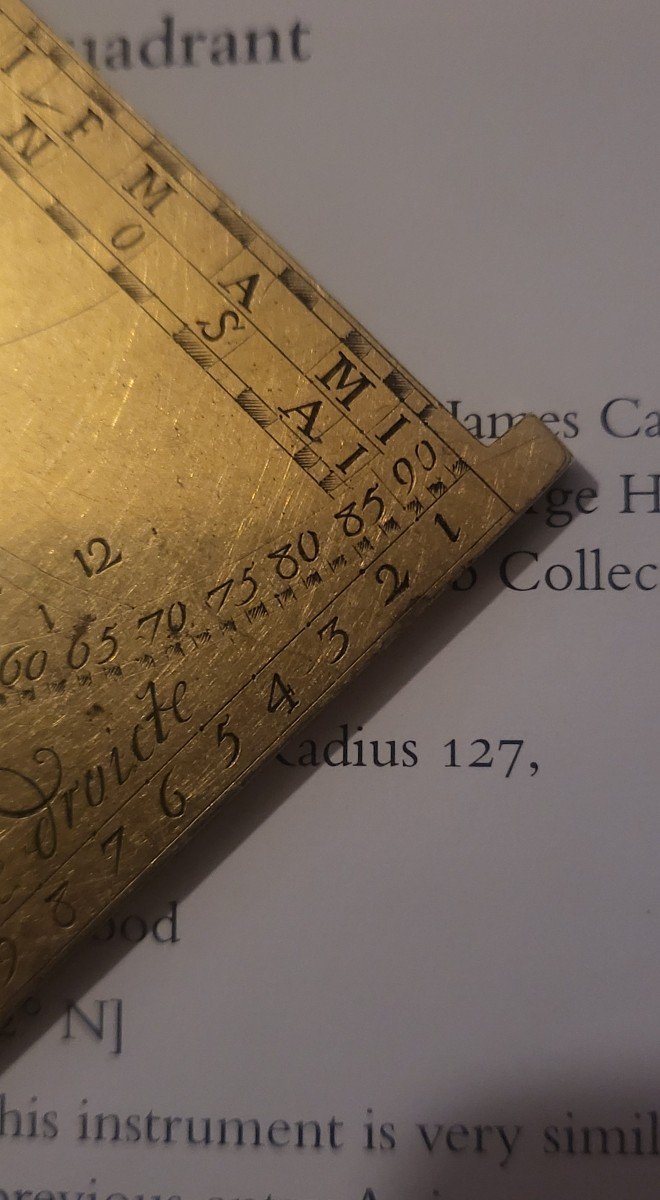 uadrant
I F M A M I
N O S A I
12
1
60 65 70 75 80 85 90
Droicte
8 7 6 5 4 3 2 1
James Ca
ge H
Collec
adius 127,
ood
° N]
his instrument is very simil